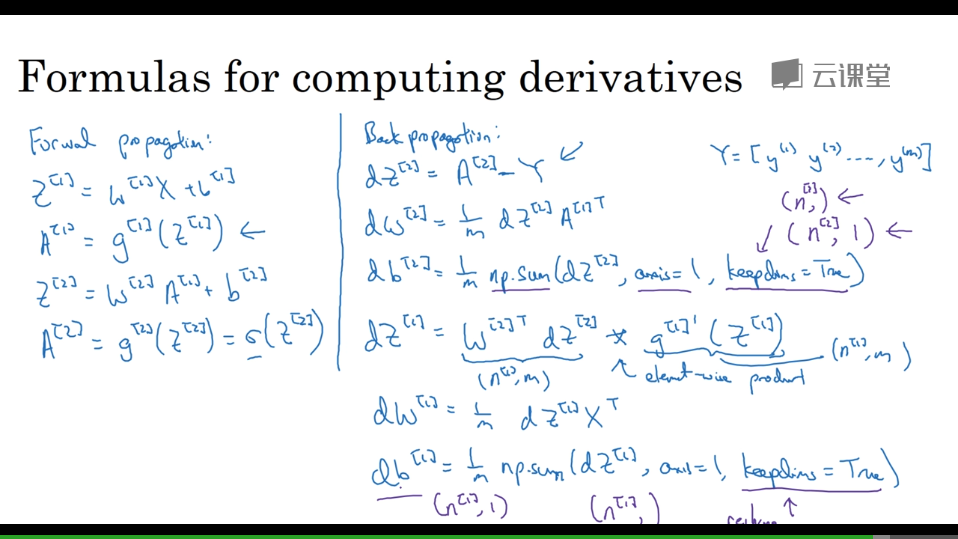 Formulas for computing derivatives
云课堂
Forward propagation:
Z^[1] = W^[1] X + b^[1]
A^[1] = g^[1](Z^[1]) ←
Z^[2] = W^[2] A^[1] + b^[2]
A^[2] = g^[2](Z^[2]) = σ(Z^[2])
Back propagation:
dZ^[2] = A^[2] - Y ↙
dW^[2] = 1/m dZ^[2] A^[1]T
db^[2] = 1/m np.sum(dZ^[2], axis=1, keepdims=True)
dZ^[1] = W^[2]T dZ^[2] * g^[1]'(Z^[1])
(n^[1], m)
↖ element-wise product
(n^[1], m)
dW^[1] = 1/m dZ^[1] X^T
db^[1] = 1/m np.sum(dZ^[1], axis=1, keepdims=True)
(n^[1], 1)
(n^[1], )
↑
Y = [y^(1) y^(2) ..., y^(m)]
(n^[1], ) ←
(n^[2], 1) ←